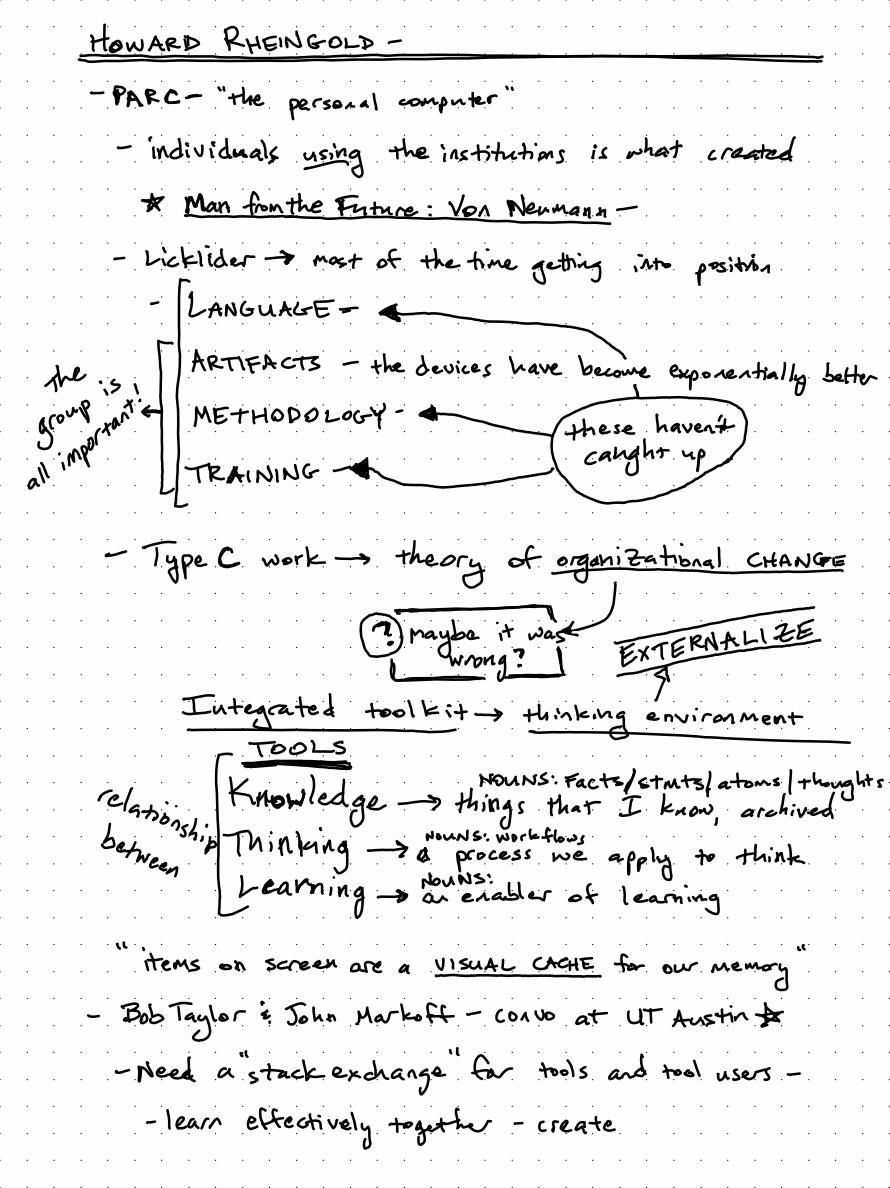 HOWARD RHEINGOLD -
- PARC - "the personal computer"
- individuals using the institutions is what created
★ Man from the Future: Von Neumann -
- Licklider → most of the time getting into position
- LANGUAGE -
ARTIFACTS - the devices have become exponentially better
METHODOLOGY -
TRAINING -
The
group is
all important!
these haven't
caught up
- Type C work → theory of organizational CHANGE
? maybe it was
wrong?
EXTERNALIZE
Integrated toolkit → thinking environment
TOOLS
relationship
between
NOUNS: Facts/stmts/atoms/thoughts
Knowledge → things that I know, archived
NOUNS: workflows
Thinking → a process we apply to think
NOUNS:
Learning → an enabler of learning
"items on screen are a VISUAL CACHE for our memory"
- Bob Taylor & John Markoff - convo at UT Austin ★
- Need a "stack exchange" for tools and tool users -
- learn effectively together - create